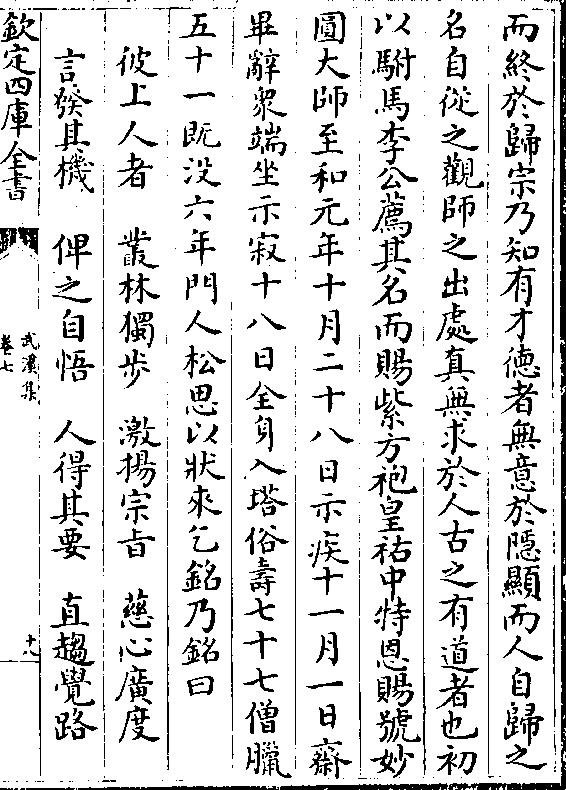 而終於歸宗乃知有才徳者無意於隱顯而人自歸之
名自從之觀師之出處真無求於人古之有道者也初
以駙馬李公薦其名而賜紫方袍皇祐中特恩賜號妙
圓大師至和元年十月二十八日示疾十一月一日齋
畢辭衆端坐示寂十八日全身入塔俗壽七十七僧臘
五十一既没六年門人松思以狀來乞銘乃銘曰
彼上人者 叢林獨步 激揚宗旨 慈心廣度
言發其機 俾之自悟 人得其要 直趨覺路
欽定四庫全書 武溪集 卷七 十八